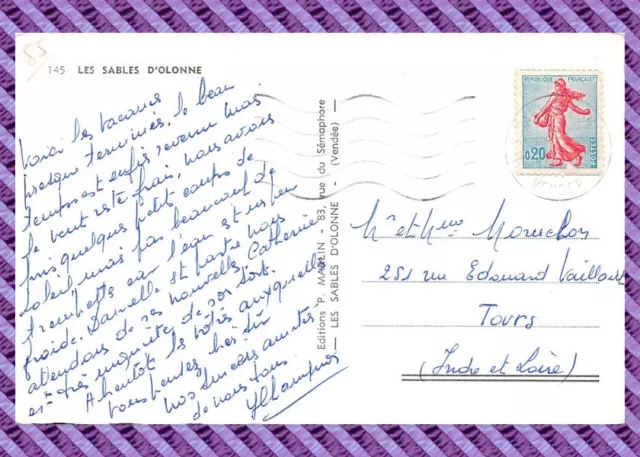 85
145 LES SABLES D'OLONNE
Voici les vacances
presque terminées. le beau
temps est enfin revenu mais
le vent reste frais, nous avons
pris quelques petits coups de
soleil, mais pas beaucoup de
trempettes car l'eau est un peu
froide. Danielle est partie nous
attendons de ses nouvelles, Catherine
est très inquiète de son sort.
A bientôt les nôtres auxquelles
vous pensez bien sûr
nos sincères amitiés
de nous tous
Editions P. MARLIN — 83, rue du Sémaphore
— LES SABLES D'OLONNE - (Vendée) —
REPUBLIQUE FRANÇAISE
0,20
POSTES
VENDEE
Mr et Mme
251 rue Edouard Vaillant
Tours
(Indre et Loire)